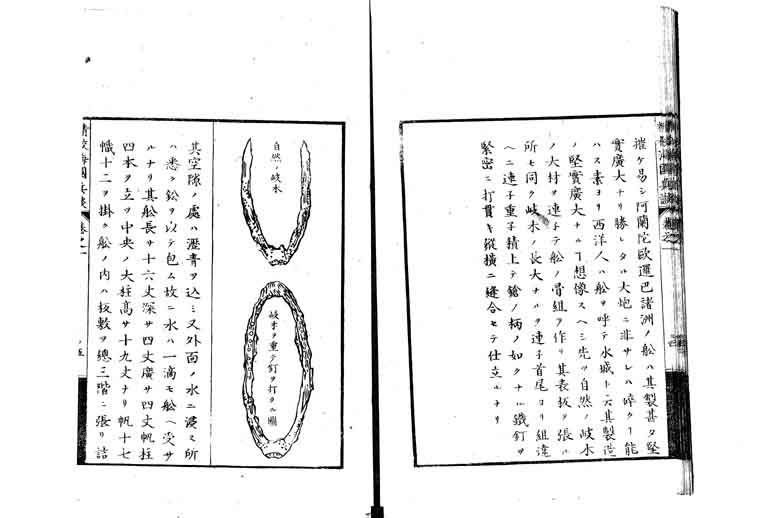 摧ケ易シ阿蘭陀歐邏巴諸洲ノ舩ハ其製甚タ堅
實廣大ナリ勝レタル大炮ニ非サレハ碎クコ能
ハス素ヨリ西洋人ハ舩ヲ呼テ水城ト云其製造
ノ堅實廣大ナルヿ想像スヘシ先ツ自然ノ岐木
ノ大材ヲ連子テ舩ノ骨組ヲ作リ其表板ヲ張ル
所モ同ク岐木ノ長大ナルヲ連子首尾ヨリ組違
ヘニ連子重子積上テ鎗ノ柄ノ如クナル鐵釘ヲ
緊密ニ打貫キ縱橫ニ縫合セテ仕立ルナリ
自然ノ岐木
岐木ヲ重子釘ヲ打タル圖
其空隙ノ處ハ瀝青ヲ込ミ又外面ノ水ニ浸ミ所
ハ悉ク鈆ヲ以テ包ム故ニ水ハ一滴モ舩ヘ受サ
ルナリ其舩長サ十六丈深サ四丈廣サ四丈帆柱
四本ヲ立ツ中央ノ大柱高サ十九丈ナリ帆十七
幟十二ヲ掛ク舩ノ内ハ板敷ヲ總三階ニ張リ詰
精校海國兵談 卷之一